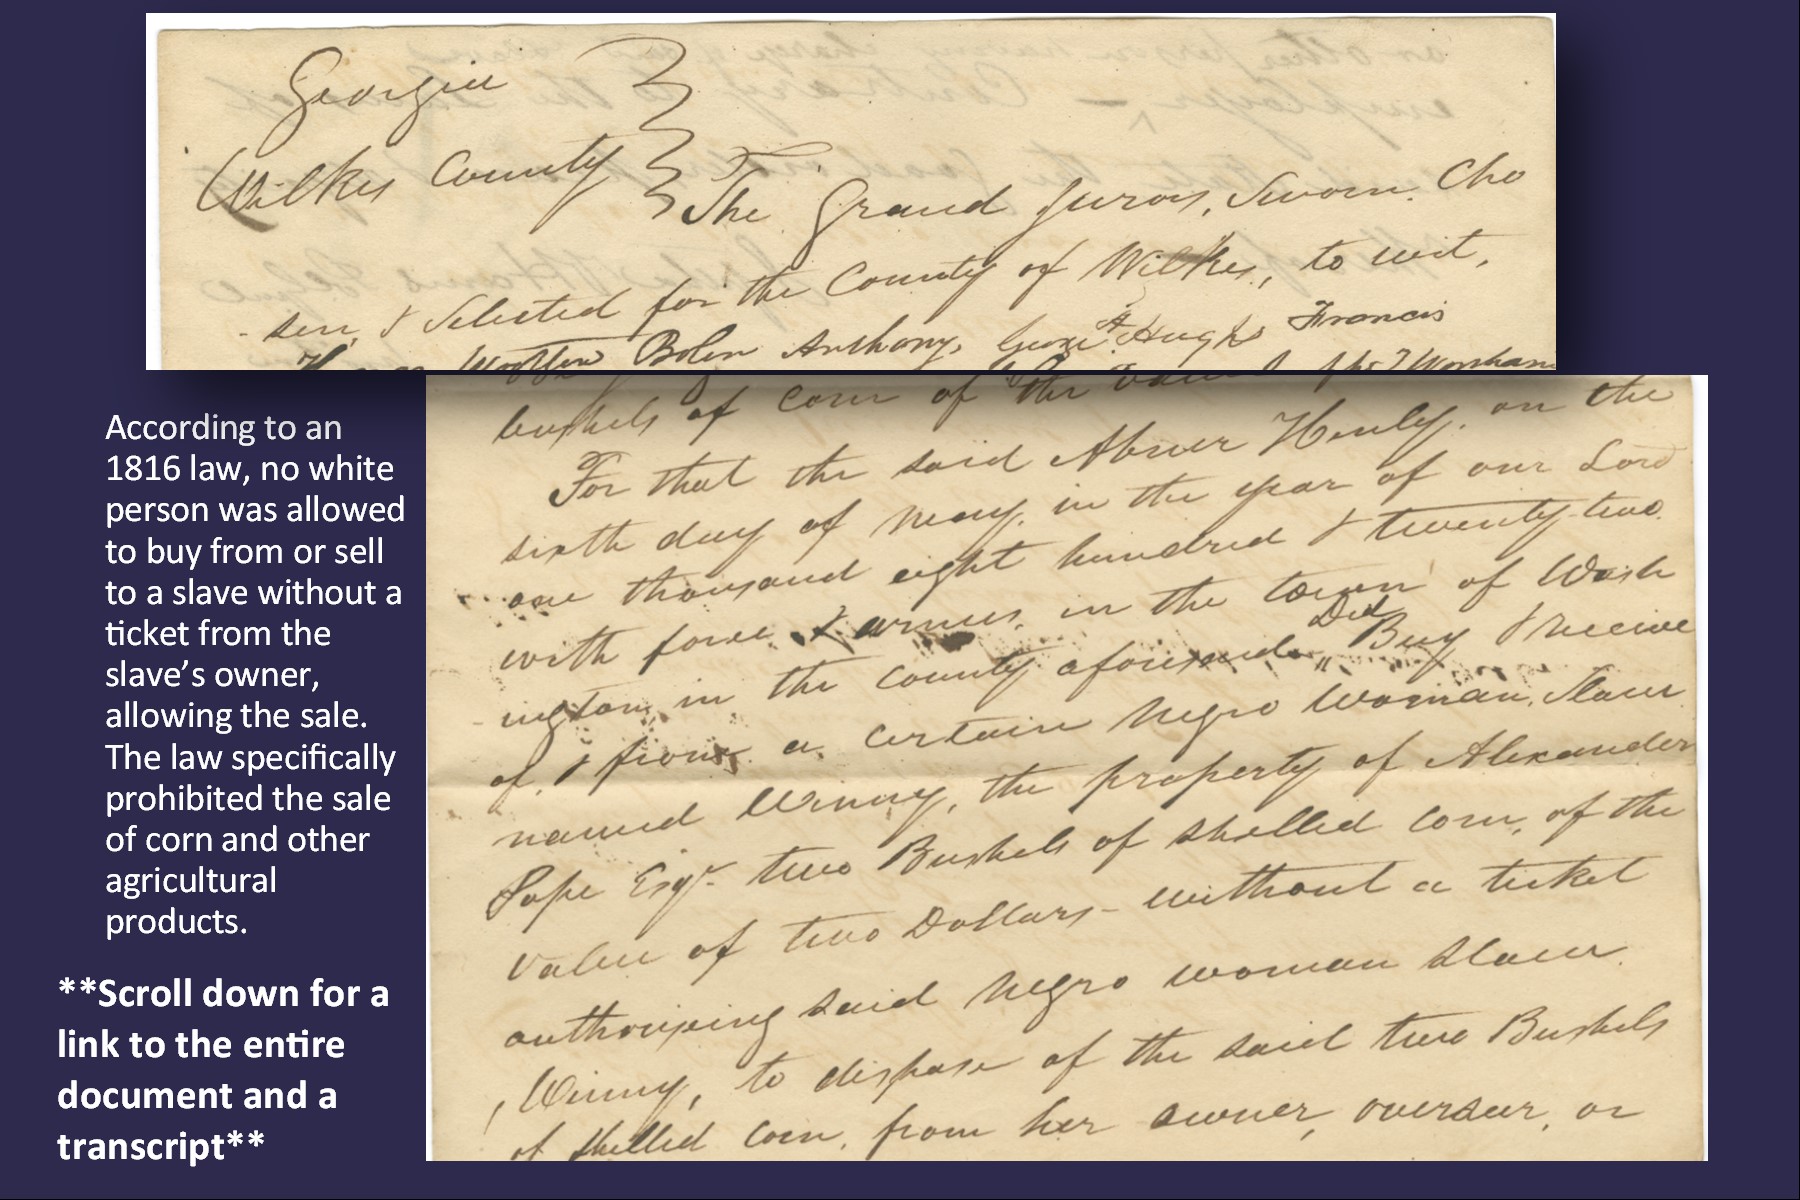 Georgia
Wilkes County
The Grand Jurors, Sworn, Cho
- sen, & Selected for the County of Wilkes, to wit,
Wootten Bolen Anthony, George Hugh Francis
bushels of corn of the value of
For that the said Abner Henly, on the
sixth day of May, in the year of our Lord
one thousand eight hundred & twenty-two
with force & armes, in the town of Wash
- ington, in the County aforesaid, Did Buy & receive
of, & from a certain Negro Woman, Slave
named Winny, the property of Alexander
Pope Esqr. two Bushels of shelled corn, of the
value of two Dollars - without a ticket
authorising said Negro woman slave
Winny, to dispose of the said two Bushels
of shelled corn, from her owner, overseer, or
According to an
1816 law, no white
person was allowed
to buy from or sell
to a slave without a
ticket from the
slave’s owner,
allowing the sale.
The law specifically
prohibited the sale
of corn and other
agricultural
products.
**Scroll down for a
link to the entire
document and a
transcript**